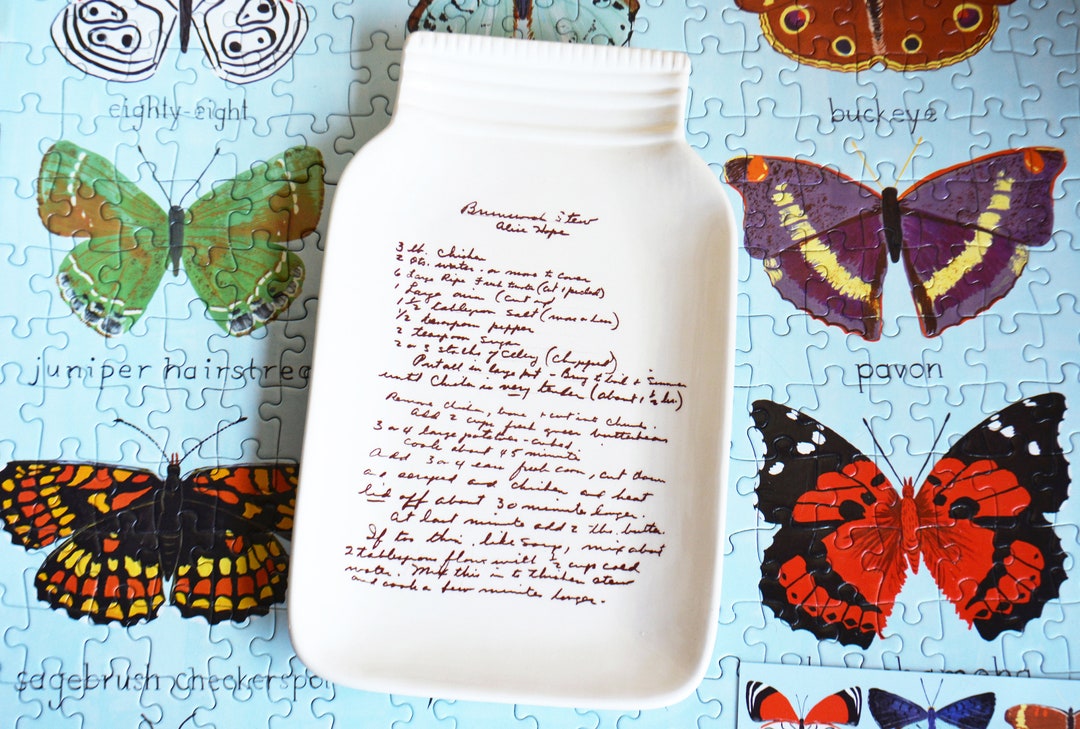 eighty-eight
buckeye
juniper hairstrea
pavon
sagebrush checkerspo
Brunswick Stew
Alice Hope
3 lb. Chicken
2 qts. water - or more to cover
6 Large Ripe Fresh tomatoes (cut & peeled)
1 Large onion (cut up)
1 1/2 tablespoon salt (more or less)
1/2 teaspoon pepper
2 teaspoon sugar
2 or 3 stalks of celery (chopped)
Put all in large pot - Bring to boil & simmer
until chicken is very tender (about 1 1/2 hr.)
Remove chicken, bone & cut into chunks.
Add 2 cups fresh green butterbeans
3 or 4 large potatoes - cubed
Cook about 45 minute
Add 3 or 4 ears fresh corn, cut down
and scraped and chicken and heat
lid off about 30 minute longer.
At last minute add 2 tbs. butter.
If too thin, like soup, mix about
2 tablespoon flour with 1/2 cup cold
water. Mix this in to thicken stew
and cook a few minutes longer.